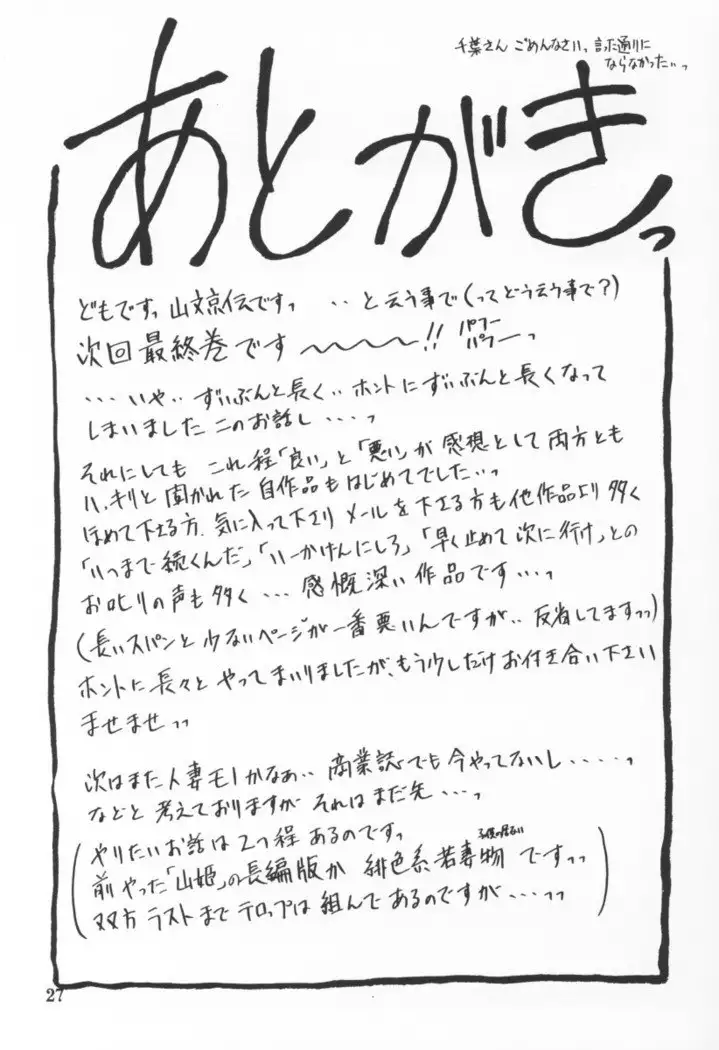 千葉さん ごめんなさいっ 言った通りに
ならなかったいっ
あとがきっ
どもですっ 山文京伝ですっ ‥と云う事で(ってどう云う事で?)
次回最終巻です〜〜〜〜!! パフー パフーっ
‥‥いや‥ずいぶんと長く‥ホントにずいぶんと長くなって
しまいましたこのお話し‥‥っ
それにしても これ程「良い」と「悪い」が感想として両方とも
ハッキリと聞かれた自作品もはじめてでした‥っ
ほめて下さる方、気に入って下さり メールを下さる方も他作品より多く
「いつまで続くんだ」、「いーかげんにしろ」、「早く止めて次に行け」との
お叱りの声も多く‥‥感慨深い作品です‥‥っ
(長いスパンと少ないページが一番悪いんですが‥反省してますっっ)
ホントに長々とやってまいりましたが、もう少しだけお付き合い下さい
ませませっっ
次はまた人妻モノかなぁ‥商業誌でも今やってないし‥‥‥っ
などと考えておりますがそれはまだ先‥‥っ
(やりたいお話は2つ程あるのですっ
前やった「山姫」の長編版か 緋色系若妻物ですっっ
双方ラストまでテロップは組んであるのですが‥‥っっ)
27